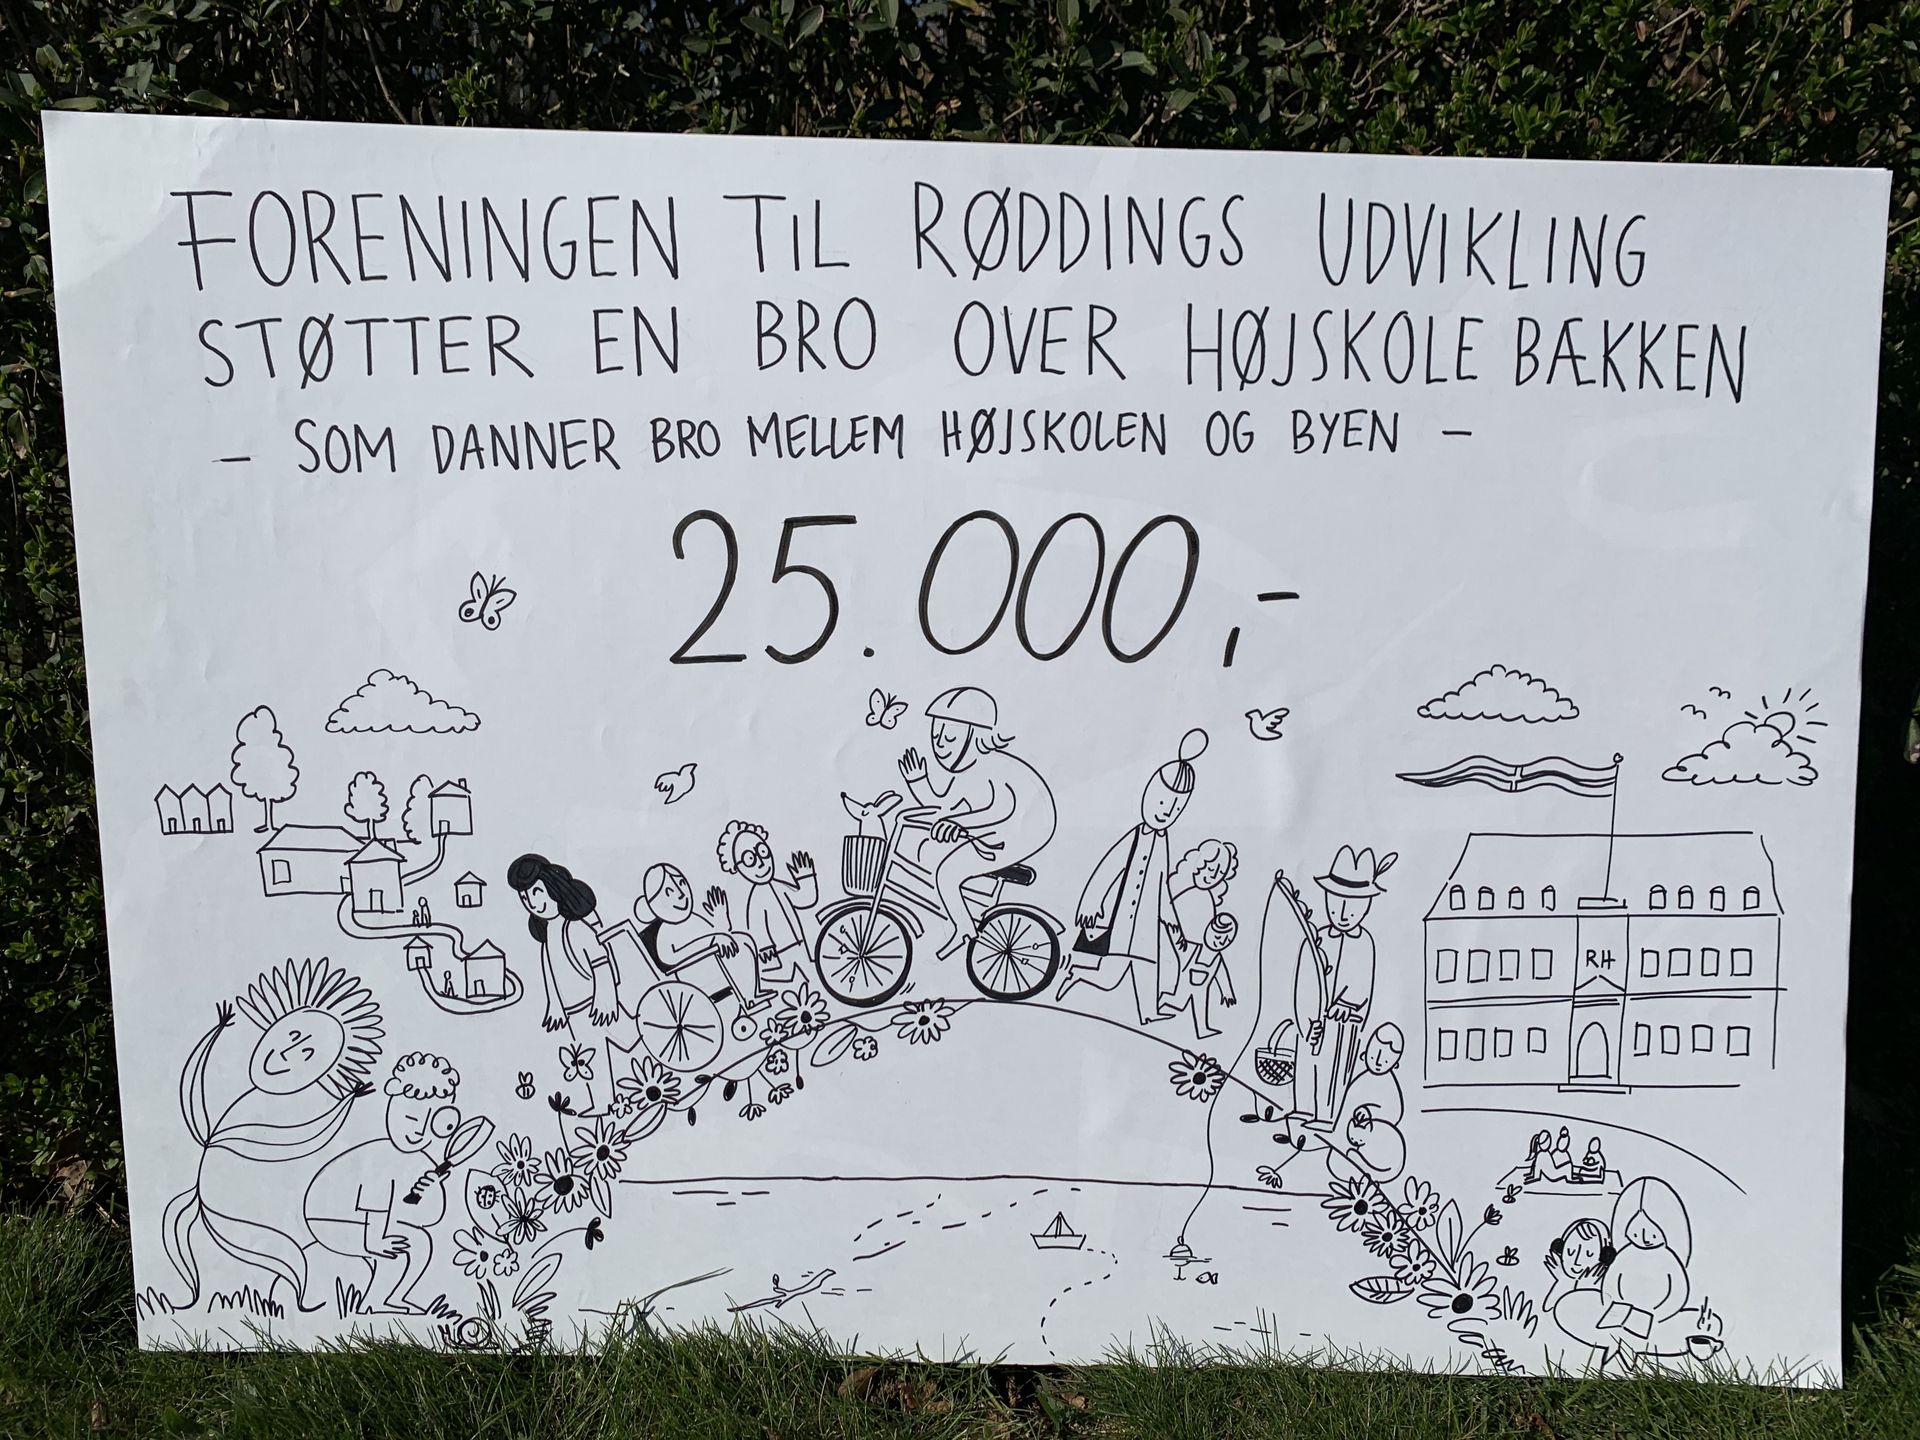 FORENINGEN TIL RØDDINGS UDVIKLING
STØTTER EN BRO OVER HØJSKOLE BÆKKEN
- SOM DANNER BRO MELLEM HØJSKOLEN OG BYEN -
25.000,-
RH